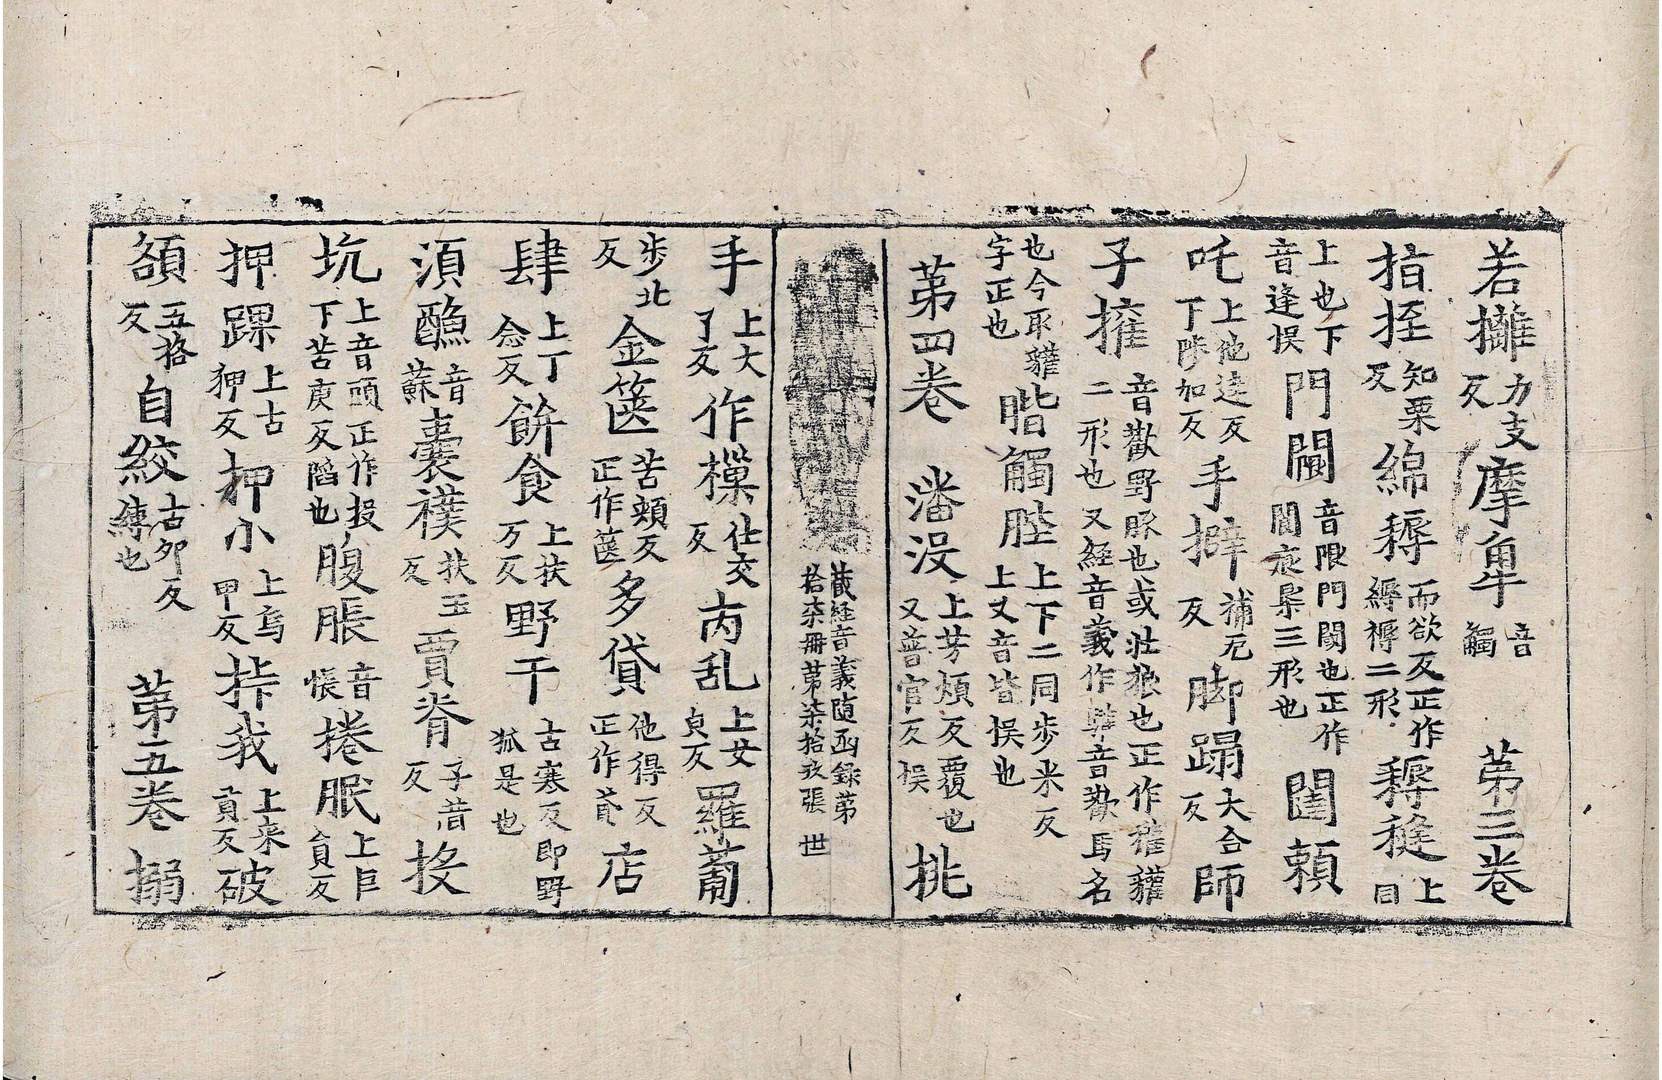 若攡力支反摩𧢻音觸　第三卷
指挃知栗反綿褥而欲反正作縟褥二形褥𦀌上同
上也下音逢悮門閫音限門閫也正作閫㡳橜三形也閨頼
吒上他達反下陟加反手擗補厄反脚蹋大合反師
子㩲音歡野豚也或壯狼也正作㹕貛二形也又經音義作驩音歡馬名
也今取貛字正也𣅜觸脞上下二同步米反上又音皆悮也
第四卷　潘没上芳煩反覆也又普官反悮挑
藏経音義随函録第拾柒冊第柒拾玖張　世
手上大了反作樔仕交反芮乱上女貞反羅蔔
步北反金篋苦頰反正作篋多貸他得反正作貣店
肆上丁念反餅食上扶万反野干古寒反即野狐是也
湏醮音蘇囊襆扶玉反賈脊子昔反㧱
坑上音頭正作投下苦庚反䧟也腹脹音悵捲眠上巨貟反
押踝上古狎反押小上烏甲反㧣我上来貢反破
額五格反自絞古夘反縛也　第五卷搦